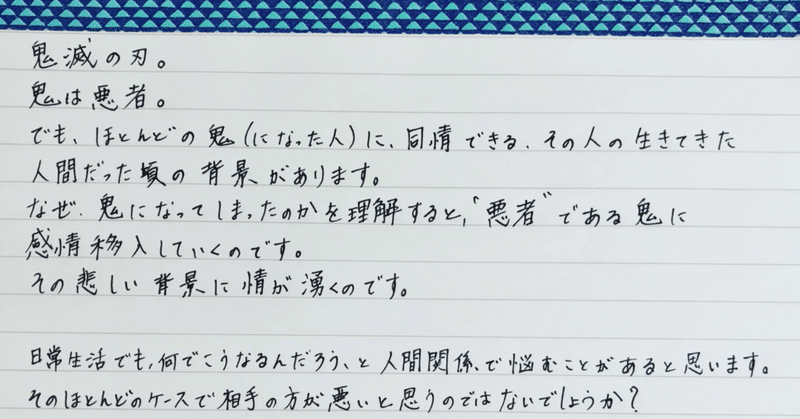 鬼滅の刃。
鬼は悪者。
でも、ほとんどの鬼(になった人)に、同情できる、その人の生きてきた
人間だった頃の背景があります。
なぜ、鬼になってしまったのかを理解すると、"悪者"である鬼に
感情移入していくのです。
その悲しい背景に情が湧くのです。
日常生活でも、何でこうなるんだろう、と人間関係、で悩むことがあると思います。
そのほとんどのケースで相手の方が悪いと思うのではないでしょうか?